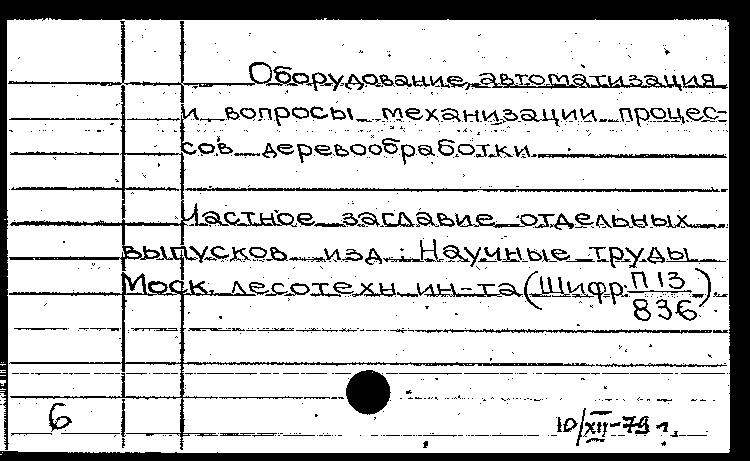 Оборудование, автоматизация
и вопросы механизации процес-
сов деревообработки
Частное заглавие отдельных
выпусков изд.: Научные труды
Моск. лесотехн. ин-та (Шифр: П13
836).
6
10/XII-79 г.